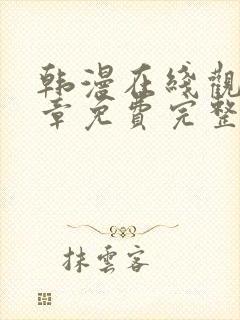 韩漫在綫觀
章免費完整
抹雲客